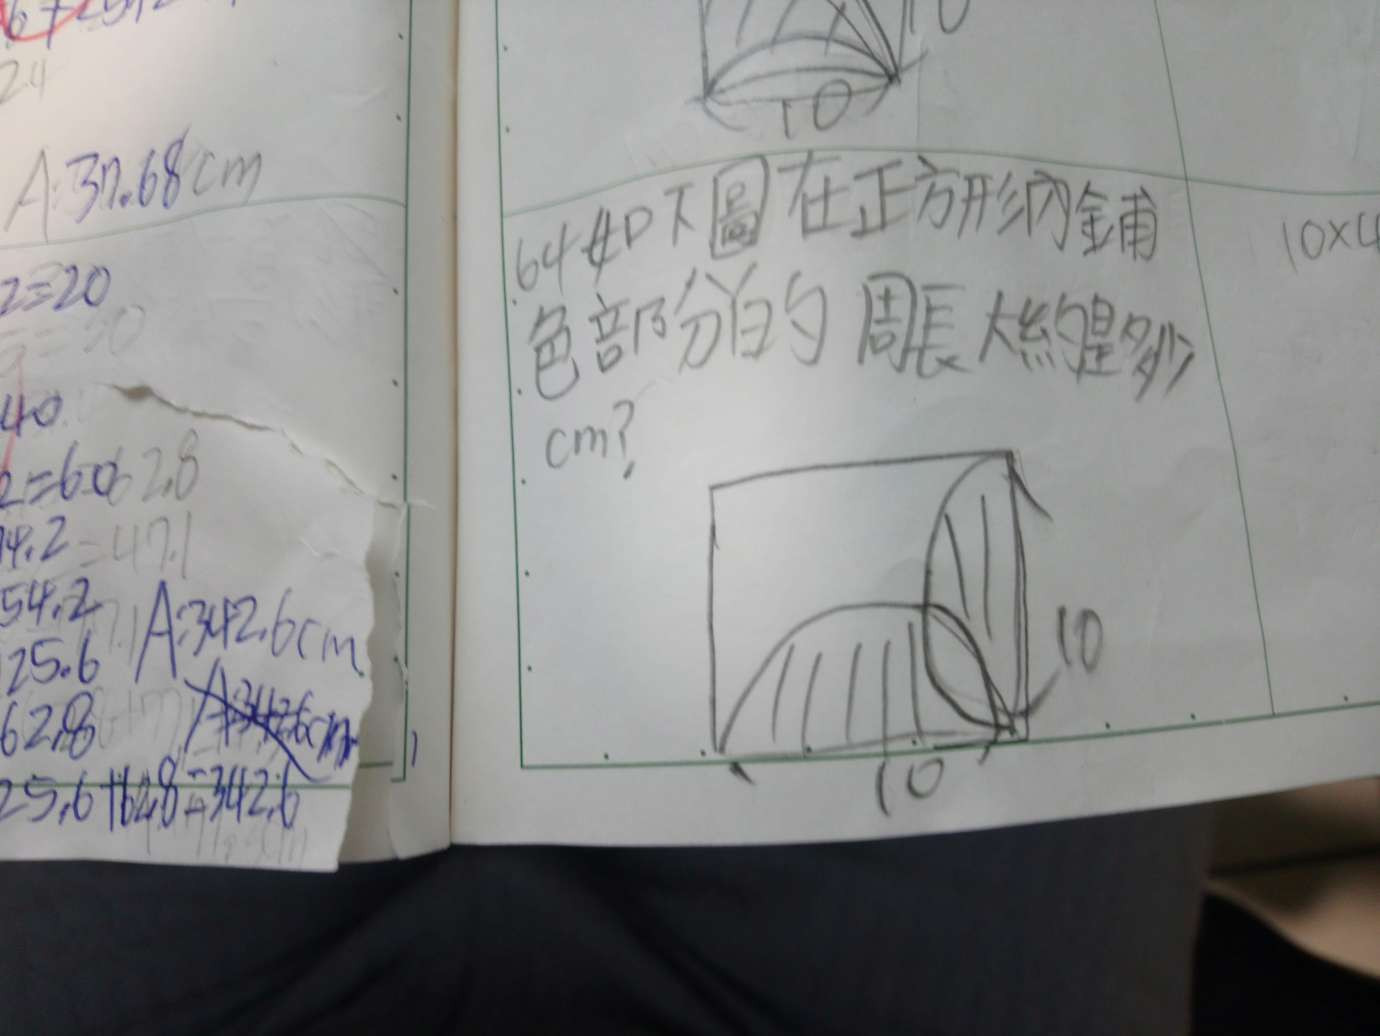 24
A:37.68cm
2=20
40
2=60 62.8
14.2=47.1
54.2
25.6 A:342.6cm
62.8
25.6+62.8=342.6
10
10
64如下圖在正方形內鋪
色部分的周長大約是多少
cm?
10
10
10×4